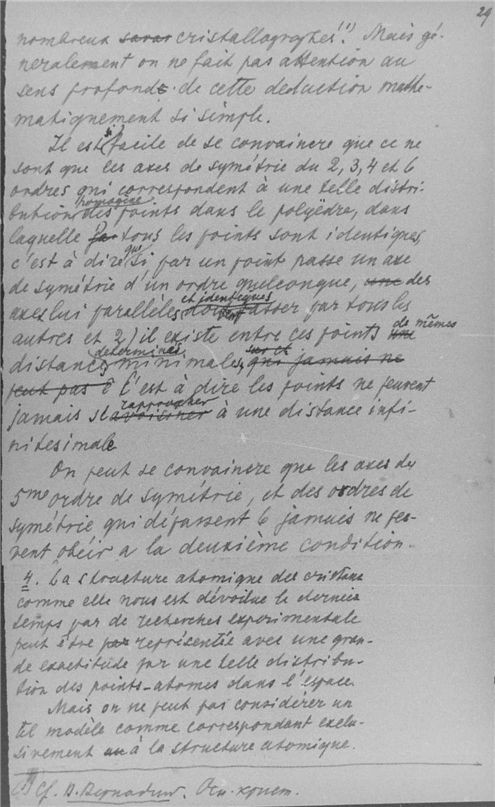 29
nombreux cristallographes¹⁾. Mais gé-
neralement on ne fait pas attention au
sens profond de cette deduction mathe-
matiquement si simple.
Il est si facile de se convaincre que ce ne
sont que les axes de symétrie du 2, 3, 4 et 6
ordres qui correspondent à une telle distri-
bution homogène des points dans le polyèdre, dans
laquelle tous les points sont identiques,
c'est à dire que 1) si par un point passe un axe
de symétrie d'un ordre quelconque, des
axes lui parallèles et identiques doivent passer par tous les
autres et 2) il existe entre ces points de mêmes
distances determinées, minimales,
c'est à dire les points ne peuvent
jamais s'rapprocher à une distance infi-
nitesimale
On peut se convaincre que les axes du
5me ordre de symétrie, et des ordres de
symétrie qui dépassent 6 jamais ne peu-
vent obéir a la deuxième condition.
4. La structure atomique des cristaux
comme elle nous est dévoilue le dernier
temps par de recherches experimentale
peut être représentée avec une gran-
de exactitude par une telle distribu-
tion des points-atomes dans l'espace.
Mais on ne peut pas considérer un
tel modèle comme correspondant exclu-
sivement à la structure atomique.
1) Cf. В. Вернадский. Осн. крист.